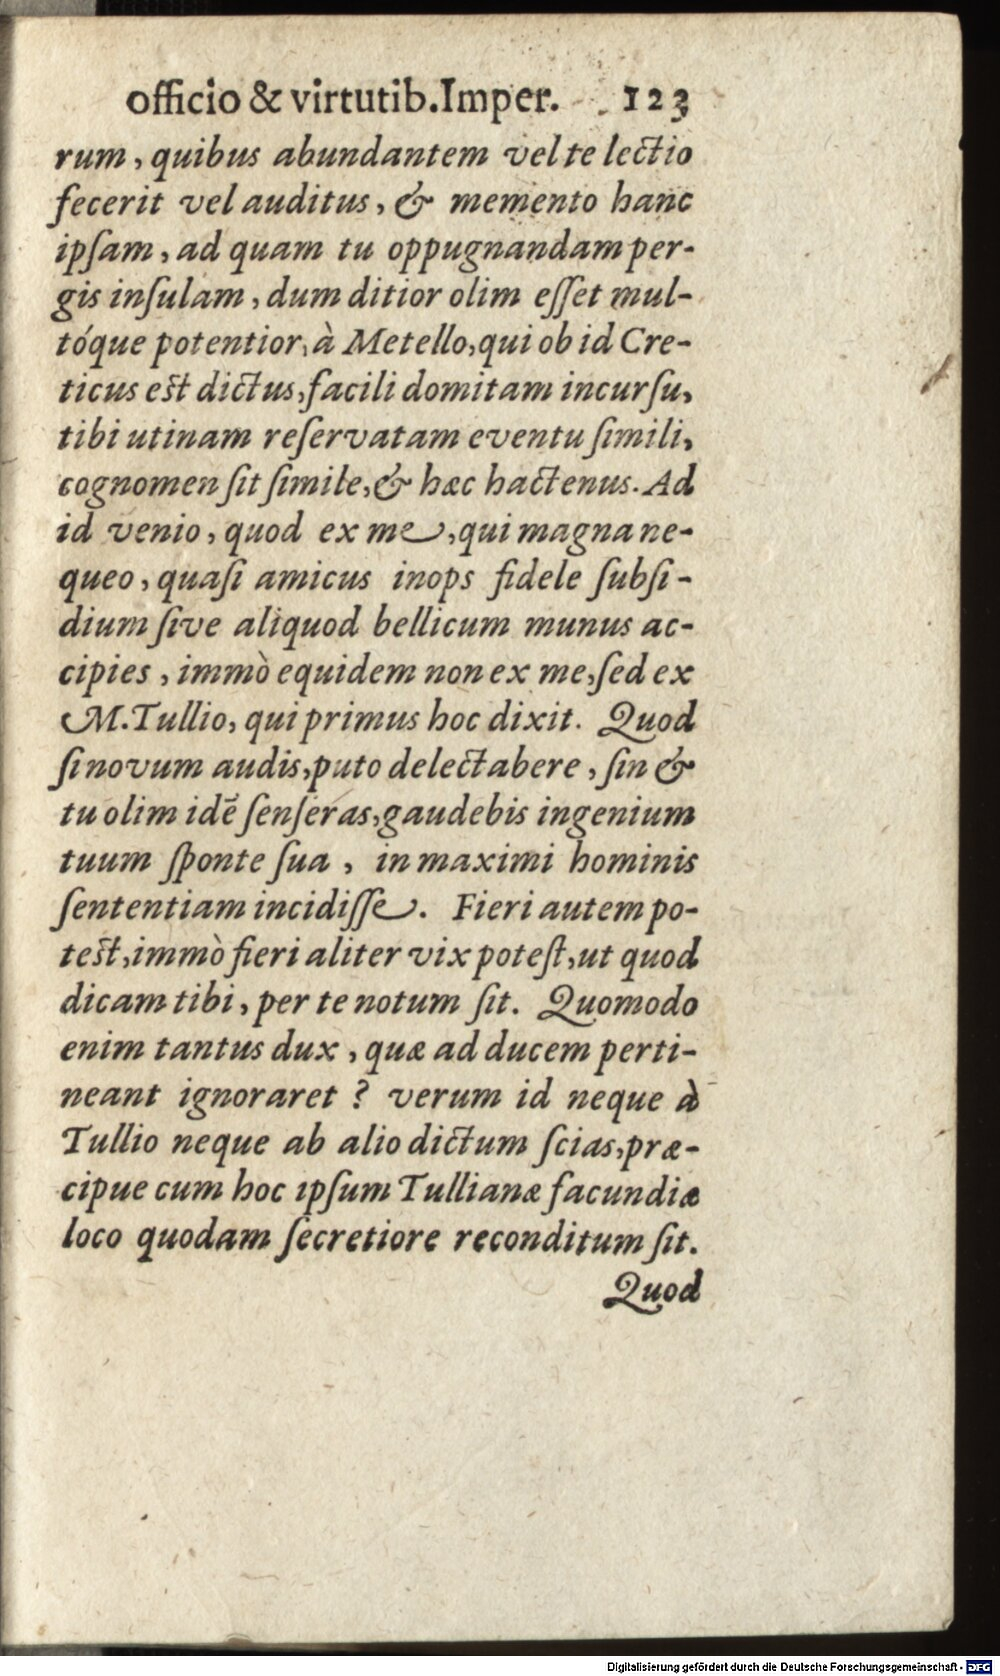 officio & virtutib. Imper. 123
rum, quibus abundantem vel te lectio
fecerit vel auditus, & memento hanc
ipſam, ad quam tu oppugnandam per-
gis inſulam, dum ditior olim eſſet mul-
tóque potentior, à Metello, qui ob id Cre-
ticus est dictus, facili domitam incurſu,
tibi utinam reſervatam eventu ſimili,
cognomen ſit ſimile, & hæc hactenus. Ad
id venio, quod ex me, qui magna ne-
queo, quaſi amicus inops fidele ſubſi-
dium ſive aliquod bellicum munus ac-
cipies, immò equidem non ex me, ſed ex
M. Tullio, qui primus hoc dixit. Quod
ſi novum audis, puto delectabere, ſin &
tu olim idē ſenſeras, gaudebis ingenium
tuum ſponte ſua, in maximi hominis
ſententiam incidiſſe. Fieri autem po-
test, immò fieri aliter vix poteſt, ut quod
dicam tibi, per te notum ſit. Quomodo
enim tantus dux, quæ ad ducem perti-
neant ignoraret? verum id neque à
Tullio neque ab alio dictum ſcias, præ-
cipue cum hoc ipſum Tullianæ facundiæ
loco quodam ſecretiore reconditum ſit.
Quod
Digitalisierung gefördert durch die Deutsche Forschungsgemeinschaft - DFG